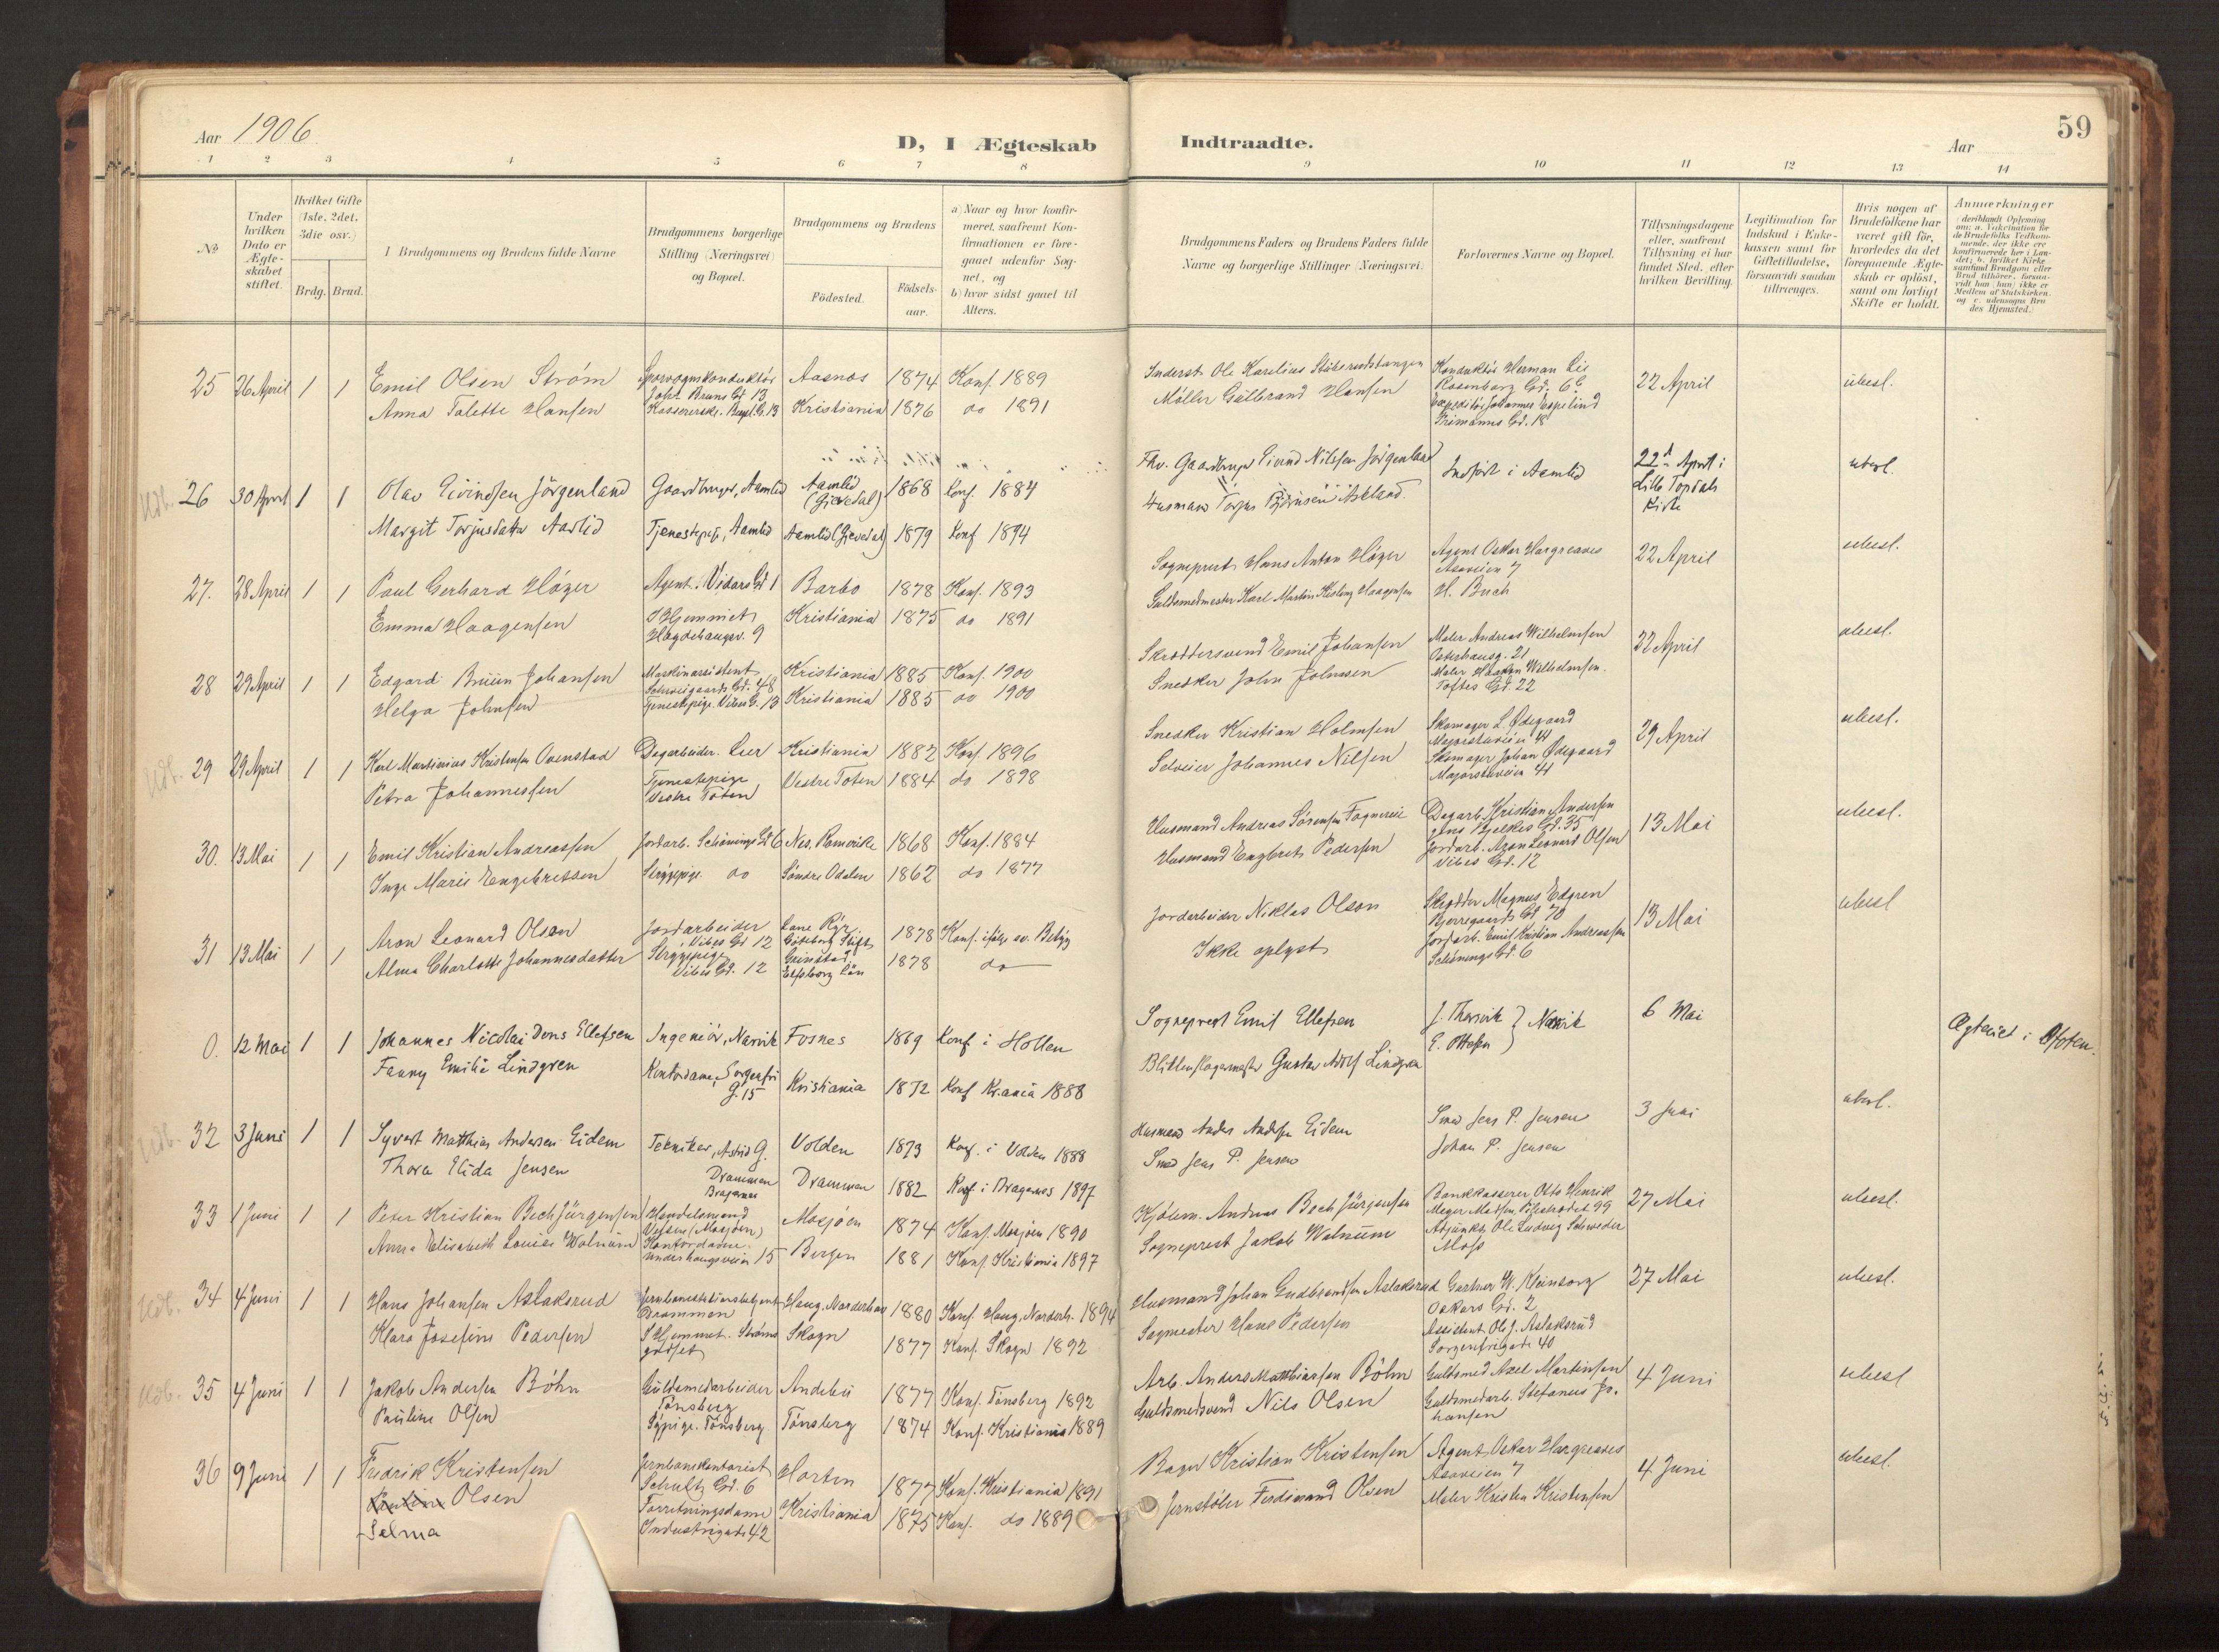 Aar 1906
D, I Ægteskab Indtraadte.
59
Aar
1 2 3 4 5 6 7 8 9 10 11 12 13 14
No
Under hvilken Dato er Ægteskabet stiftet.
Hvilket Gifte (1ste, 2det, 3die osv.)
Brdg. Brud.
Brudgommens og Brudens fulde Navne
Brudgommens borgerlige Stilling (Næringsvei) og Bopæl.
Brudgommens og Brudens
Födested.
Födsels-aar.
a) Naar og hvor konfirmeret, saafremt Konfirmationen er foregaaet udenfor Sognet, og
b) hvor sidst gaaet til Alters.
Brudgommens Faders og Brudens Faders fulde Navne og borgerlige Stillinger (Næringsvei)
Forlovernes Navne og Bopæl.
Tillysningsdagene eller, saafremt Tillysning ei har fundet Sted, efter hvilken Bevilling.
Legitimation for Indskud i Enkekassen samt for Giftetilladelse, forsaavidt saadan tiltrænges.
Hvis nogen af Brudefolkene har været gift før, hvorledes da det foregaaende Ægteskab er opløst, samt om lovligt Skifte er holdt.
Anmærkninger
25 26 April 1 1 Emil Olsen Strøm Sporvognskonduktør Aasnes 1874 Konf. 1889
Johs Bruns Gd. 13
Anna Talette Hansen Kristiania 1876 do 1891
Inderst Ole Karelius Konduktør Herman Lie 22 April ubesl.
Møller Gulbrand Hansen Rosenborg Gd. 6
Johannes Espelund
Gd. 18
26 30 April 1 1 Olav Eivindsen Jörgenland Gaardbruger, Aamlid Aamlid 1868 Conf. 1884
(Gjevedal)
Margit Torjusdatter Aaslid Tjenestepige, Aamlid Aamlid (Gjevedal) 1879 Konf 1894
Fhv. Gaardbruger Eivind Nilssen Jörgenland Indført i Aamlid 22de April i ubesl.
Husmand Torjus Bjørnsen Lille Topdals
Kirke
27. 28 April 1 1 Paul Gerhard Høyer Agent. Vidars Gd 1 Barbo 1878 Konf. 1893
Emma Haagensen I Hjemmet Kristiania 1875 do 1891
9
Sogneprest Hans Anton Høyer Agent Oskar Hargreaves 22 April ubesl.
Asaveien 7
Guldsmedmester Karl Martin H. Buch
28 29 April 1 1 Edgard Bruun Johansen Maskinassistent Kristiania 1885 Konf. 1900
Schweigaards Gd. 48
Helga Johnsen Tjenestepige. Vibes G. 13 Kristiania 1885 do 1900
Skræddersvend Emil Johansen Maler Andreas Wilhelmsen 22 April ubesl.
Osterhausg. 21
Snedker John Johnsen Maler Haakon Wilhelmsen.
Toftes Gd. 22
29 29 April 1 1 Karl Martinius Kristensen Ovenstad Dagarbeider. Lier Kristiania 1882 Konf. 1896
Petra Johannessen Tjenestepige Vestre Toten 1884 do 1898
Vestre Toten
Snedker Kristian Holmsen Skomager L. Ødegaard 29 April ubesl.
Majorstuveien 41
Selveier Johannes Nilsen Skomager Johan Ødegaard
Majorstuveien 41
30. 13 Mai 1 1 Emil Kristian Andreassen Jordarb. Schønings Gd 6 Nes, Romerike 1868 Konf. 1884
Inga Marie Engebretsen Strygepige. do Søndre Odalen 1862 do 1877
Husmand Andreas Sørensen Dagarb. Kristian Andersen 13 Mai ubesl.
Jens Bjelkes Gd. 35
Husmand Engbret Pedersen Jordarb. Aron Leonard Olsen
Vibes Gd. 12
31 13 Mai 1 1 Aron Leonard Olson Jordarbeider 1878 Konf. ifølge sv. Betyg
Vibes Gd 12 Göteborg Stift
Alma Charlotte Johannesdatter Strygepige 1878 do
Vibes Gd. 12 Elfsborg Län
Jordarbeider Niklas Olson Skrædder Magnus Edgren 13 Mai ubesl
Bjerregaards Gd 70
Ikke oplyst Jordarb. Emil Kristian Andreassen
Schønings Gd. 6
0. 12 Mai 1 1 Johannes Nicolai Dons Ellefsen Ingeniør, Narvik Fosnes 1869 Konf i Hollen
Fanny Emilie Lindgren Kontordame, Sorgenfri G. 15 Kristiania 1872 Konf Kr.ania 1888
Sogneprest Emil Ellefsen J. Thorvik } Narvik 6 Mai Ægteviet i Ofoten.
Blikkenslagermester Gustav Adolf Lindgren E. Ottesen
32 3 Juni 1 1 Syvert Matthias Andersen Eidem Tekniker, Astrid G. Volden 1873 Konf. i Volden 1888
Thora Elida Jensen Drammen Drammen 1882 Konf i Bragernes 1897
Bragernes
Husmand Anders Andersen Eidem Smed Jens P. Jensen 3 Juni ubesl.
Smed Jens P. Jensen Johan P. Jensen
33 1 Juni 1 1 Peter Kristian Bech Jürgensen Handelsmand Mosjøen 1874 Konf. Mosjøen 1890
Vefsen (Mosjøen)
Anna Elisabeth Louise Walnum Kontordame. Bergen 1881 Konf. Kristiania 1897
Underhaugsveien 15
Kjøbm. Andreas Bech Jürgensen Bankkasserer Otto Henrik 27 Mai ubesl.
Meyer Madsen, Pilestrædet 99
Sogneprest Jakob Walnum Adjunkt Ole Ludvig Schweder
Moss
34 4 Juni 1 1 Hans Johansen Aslaksrud Haug, Norderhov 1880 Konf. Haug, Norderh. 1894
Drammen
Klara Josefine Pedersen I Hjemmet. Strøms- Skogn 1877 Konf. Skogn 1892
godset
Husmand Johan Gudbrandsen Aslaksrud Gartner W. Kleinborg 27 Mai ubesl.
Oskars Gd. 2
Sagmester Hans Pedersen Assistent Ole J. Aslaksrud
Sorgenfrigade 40
35 4 Juni 1 1 Jakob Andersen Böhn Guldsmedarbeider Andebu 1877 Konf. Tønsberg 1892
Tønsberg
Pauline Olsen Sypige. Tønsberg Tønsberg 1874 Konf. Kristiania 1889
Arb. Anders Matthiassen Böhn Guldsmed Axel Martinsen 4 Juni ubesl
Guldsmedsvend Nils Olsen Guldsmedarb. Stefanus Jo-
hansen
36 9 Juni 1 1 Fredrik Kristensen Jernbanekontorist Horten 1877 Konf. Kristiania 1891
Schultz Gd. 6
Pauline Olsen Forretningsdame Kristiania 1875 Konf. do 1889
Selma Industrigade 42
Bager Kristian Kristensen Agent Oskar Hargreaves 4 Juni ubesl.
Asaveien 7
Jernstøber Ferdinand Olsen Maler Kristen Kristensen